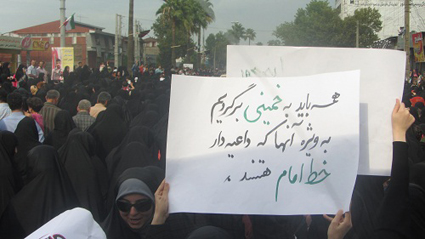 همه باید به خمینی برگردیم
به ویژه آنها که داعیه دار
خط امام هستند .